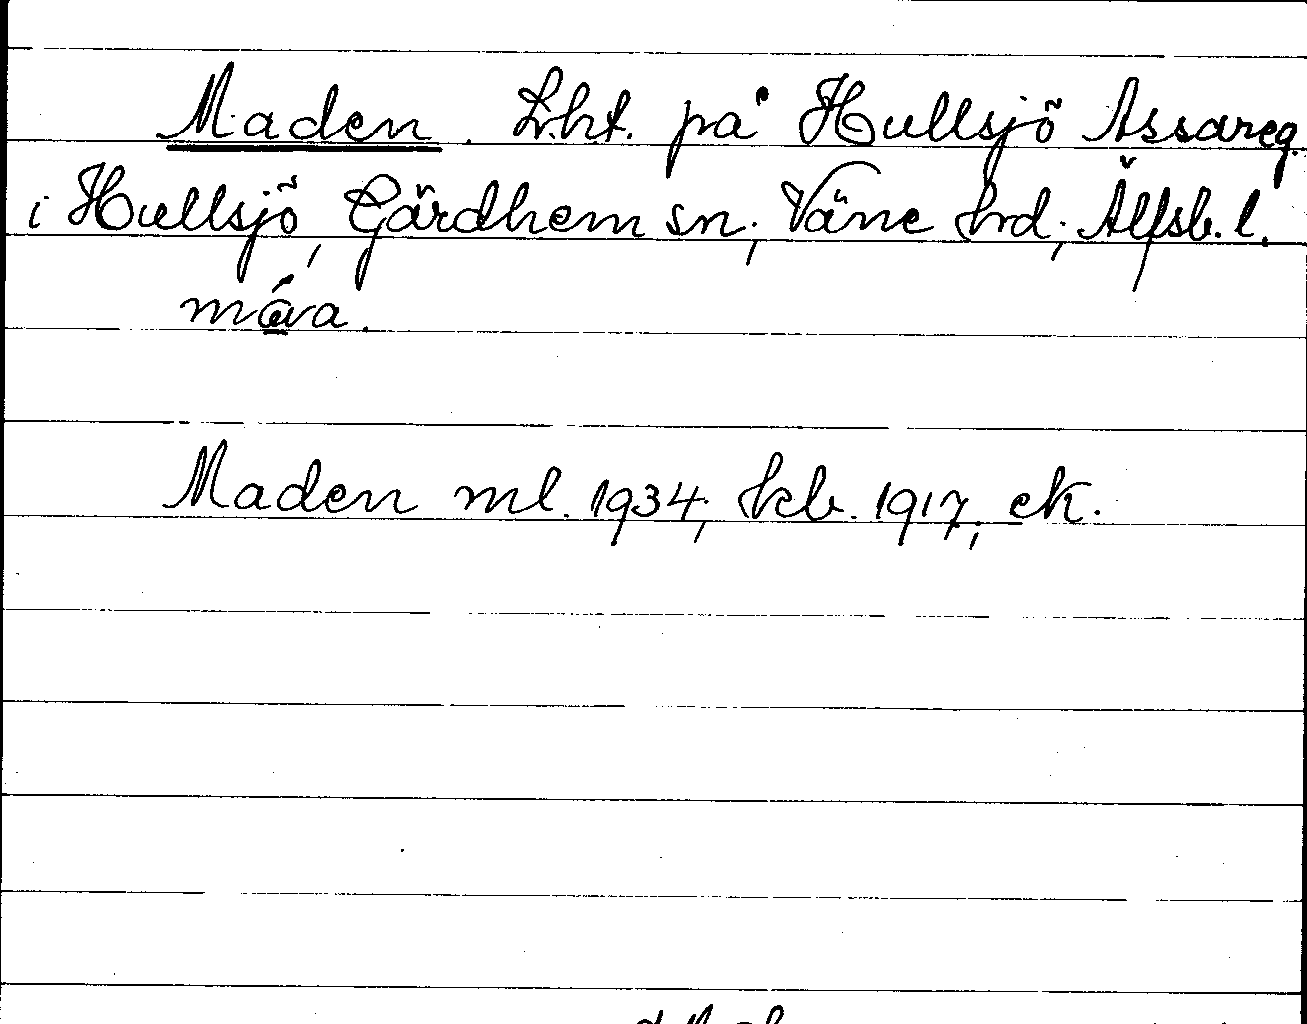 Maden. Lht. på Hullsjö Assareg.
i Hullsjö, Gärdhem sn; Väne hrd; Älfsb. l.
måva.
Maden ml. 1934, kb. 1917; ek.